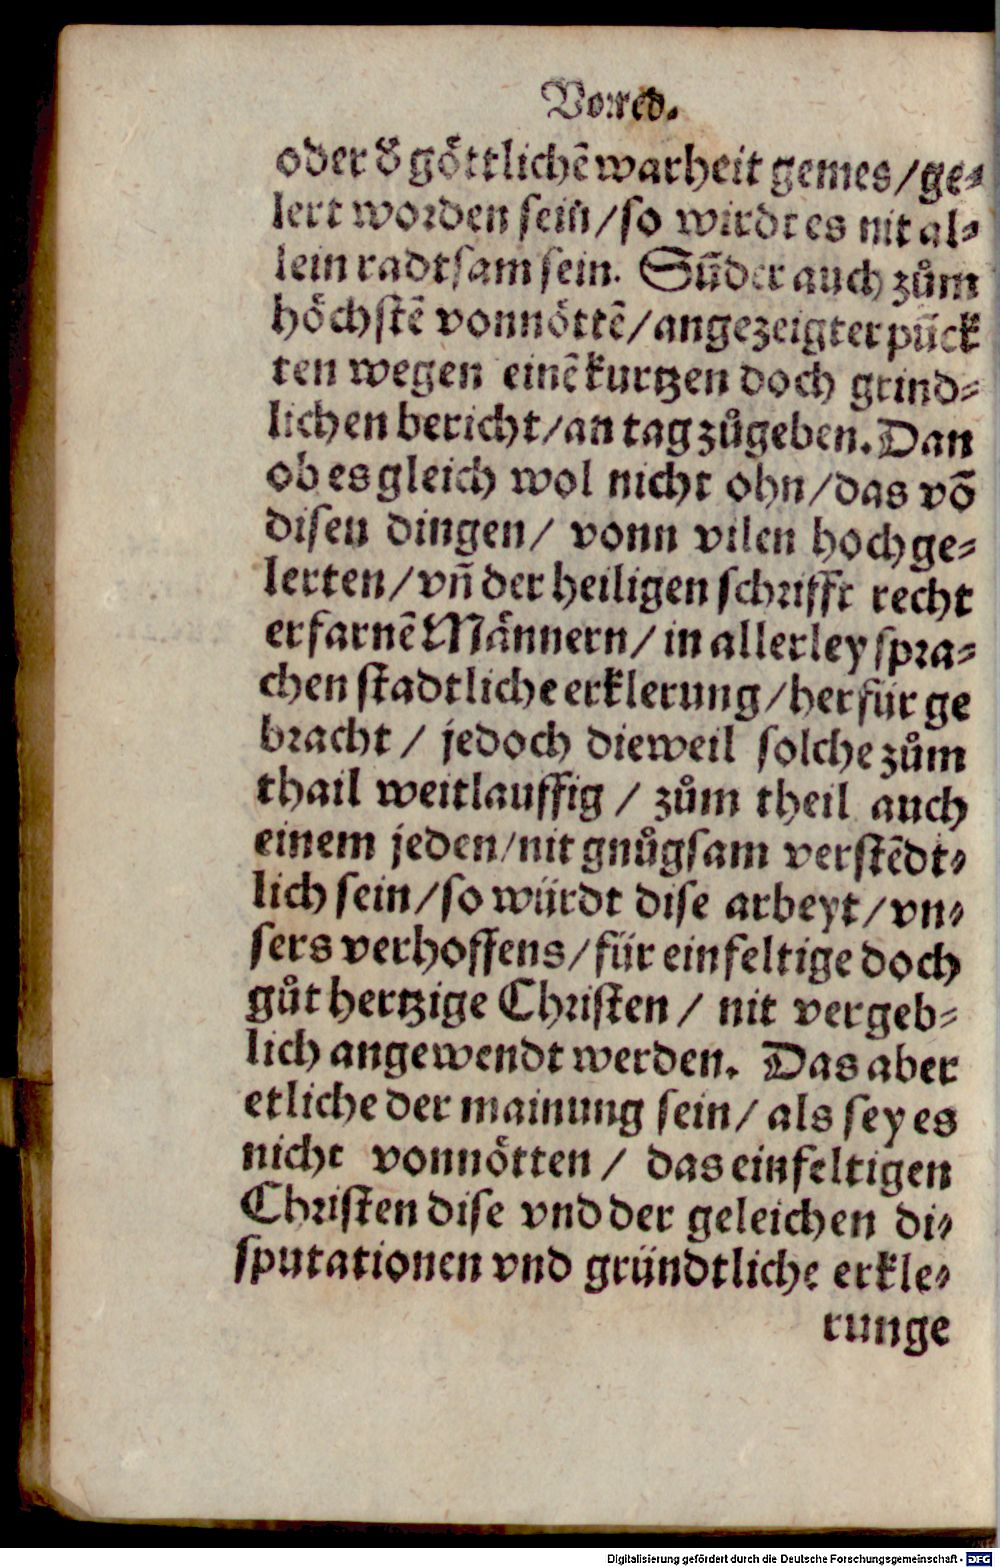 Vorred.
oder d̕ göttlichē warheit gemes / ge⸗
lert worden sein / so wirdt es nit al⸗
lein radtsam sein. Sūder auch zům
höchstē vonnöttē / angezeigter pūck
ten wegen einē kurtzen doch grind⸗
lichen bericht / an tag zůgeben. Dan
ob es gleich wol nicht ohn / das vō
disen dingen / vonn vilen hochge⸗
lerten / vñ der heiligen schrifft recht
erfarnē Männern / in allerley spra⸗
chen stadtliche erklerung / herfür ge
bracht / jedoch dieweil solche zům
thail weitlauffig / zům theil auch
einem jeden / nit gnůgsam verstēdt⸗
lich sein / so würdt dise arbeyt / vn⸗
sers verhoffens / für einfeltige doch
gůthertzige Christen / nit vergeb⸗
lich angewendt werden. Das aber
etliche der mainung sein / als sey es
nicht vonnötten / das einfeltigen
Christen dise vnd der geleichen di⸗
sputationen vnd gründtliche erkle⸗
runge
Digitalisierung gefördert durch die Deutsche Forschungsgemeinschaft - DFG